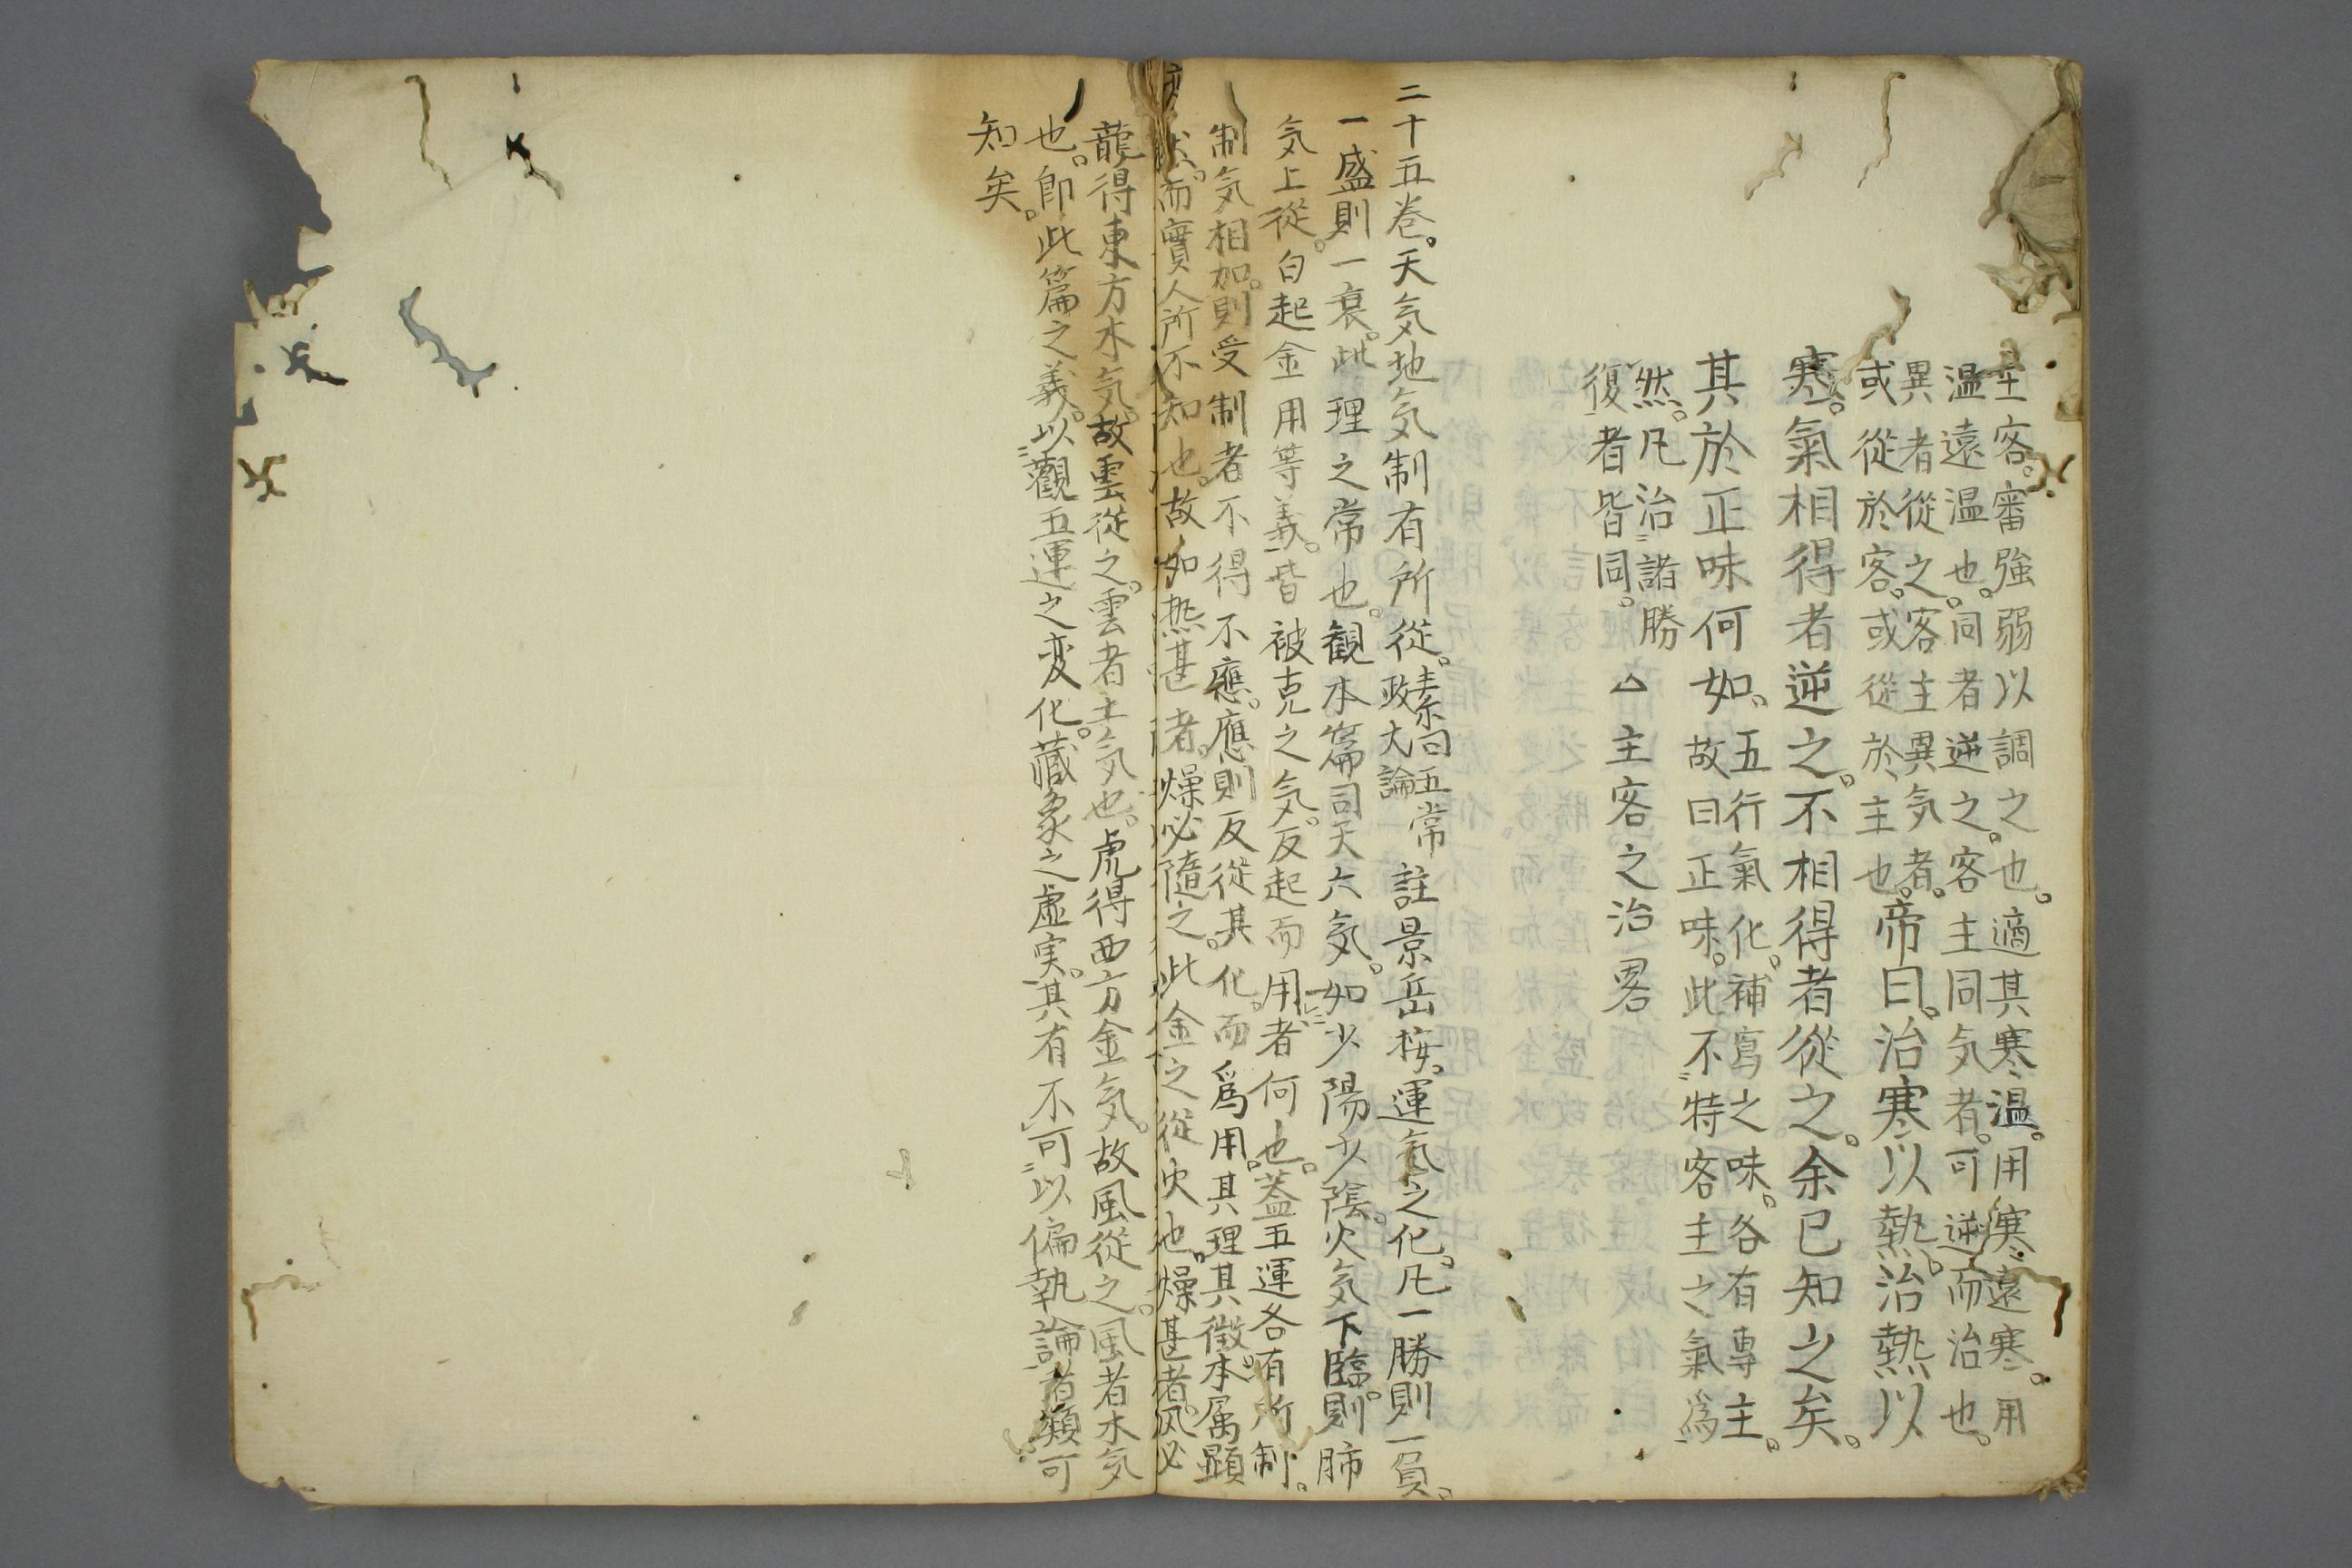 主客。審強弱以調之也。適其寒温。用寒遠寒。用
温遠温也。同者逆之。客主同気者。可逆而治也。
異者從之。客主異気者。
或從於客。或從於主也。帝曰。治寒以熱。治熱以
寒。氣相得者逆之。不相得者從之。余已知之矣。
其於正味何如。五行氣化。補寫之味。各有専主。
故曰正味。此不特客主之氣爲
然。凡治諸勝
復者皆同。 △主客之治畧
二十五卷。天気地気制有所從。素問五常政大論 註景岳按。運氣之化。凡一勝則一負。
一盛則一衰。此理之常也。観本篇司天六気。如少陽少陰。火気下臨。則肺
気上從。白起金用等義。皆被克之気。反起而用者何也。蓋五運各有所制。
制気相加。則受制者不得不應。應則反從其化。而爲用。其理其徴。本属顕
然。而實人所不知也。故如热甚者。燥必隨之。此金之從火也。燥甚者。风必
龍得東方木気。故雲從之。雲者土気也。虎得西方金気。故風從之。風者木気
也。即此篇之義。以觀五運之変化。藏象之虚実。其有不可以偏執論者類可
知矣。